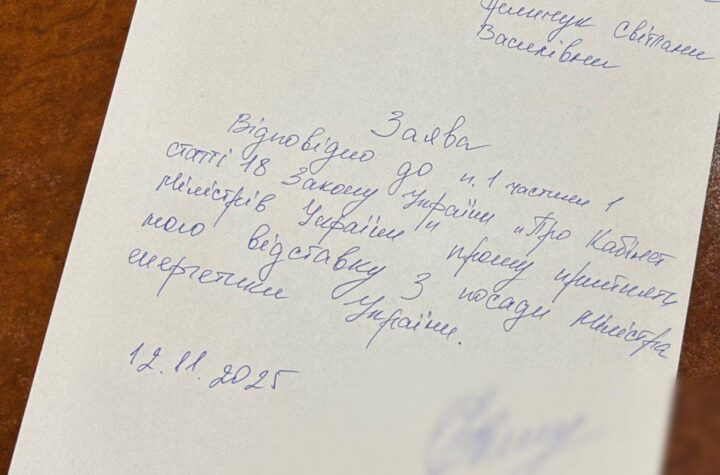 Гринчук Світлани
Василівни
Заява
Відповідно до п.1 частини 1
статті 18 Закону України „Про Кабінет
Міністрів України" прошу прийняти
мою відставку з посади Міністра
енергетики України.
12.11.2025